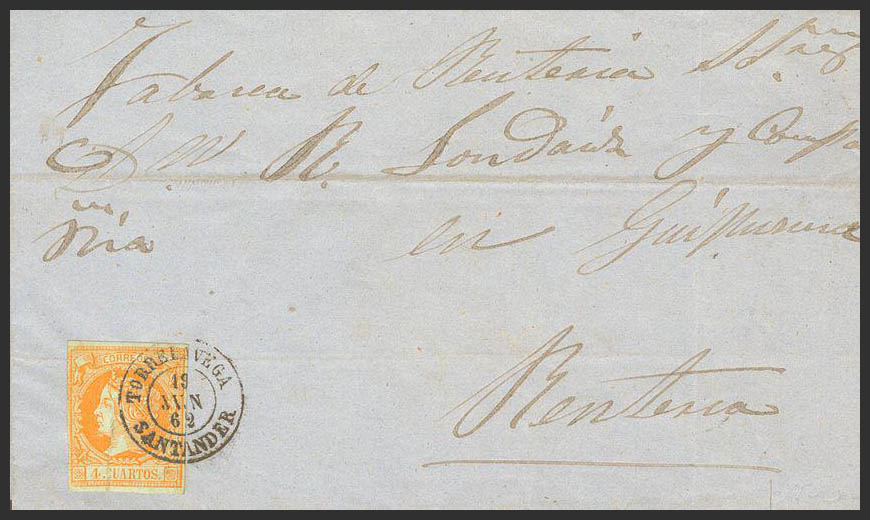 Fabrica de Renteria S.Sres
D.n R. Londaiz y Compa
ñia en Guipuzcoa
Renteria
CORREOS
4 CUARTOS.
TORRELAVEGA
19
JUN
62
SANTANDER